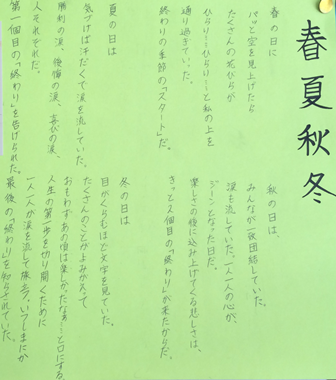 春夏秋冬
春の日に
パッと空を見上げたら
たくさんの花びらが
ひらり…ひらり…と私の上を
通り過ぎていった。
終わりの季節の「スタート」だ。
夏の日は
気づけば汗だくで涙を流していた。
勝利の涙、後悔の涙、喜びの涙、
人それぞれだ。
第一個目の「終わり」を告げられた。
秋の日は
みんなが一致団結していた。
涙も流していた。一人一人の心が、
ジーンとなった日だ。
楽しさの後に込み上げてくる悲しさは、
きっと2個目の「終わり」が来たからだ。
冬の日は
目がくらむほど文字を見ていた。
たくさんのことがよみがえって
おもわず「あの頃は楽しかったなぁ…」と口にする。
人生の第一歩を切り開くために
一人一人が涙を流して旅立つ。いつしまたか
最後の「終わり」を知らされていた。